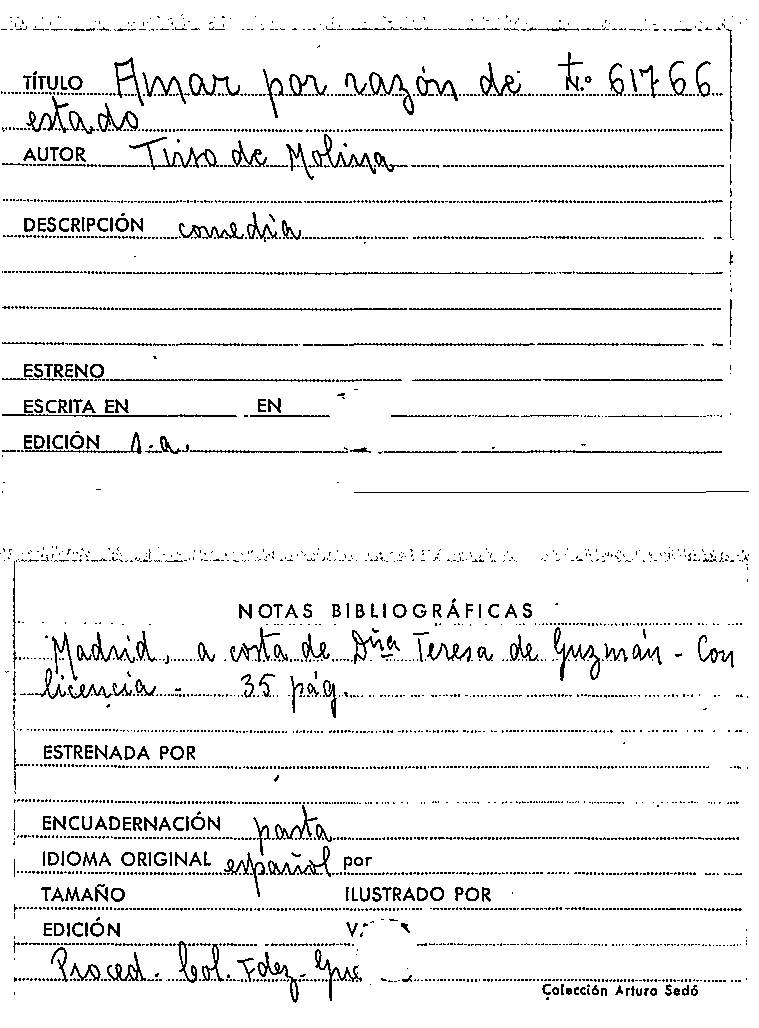 TÍTULO Amar por razón de N.º 61766
estado
AUTOR Tirso de Molina
DESCRIPCIÓN comedia
ESTRENO
ESCRITA EN EN
EDICIÓN s.a.
NOTAS BIBLIOGRÁFICAS
Madrid, a costa de Dña Teresa de Guzmán - Con
licencia - 35 pág.
ESTRENADA POR
ENCUADERNACIÓN pasta
IDIOMA ORIGINAL español por
TAMAÑO ILUSTRADO POR
EDICIÓN
Proced. Col. Fdez-
Colección Arturo Sedó